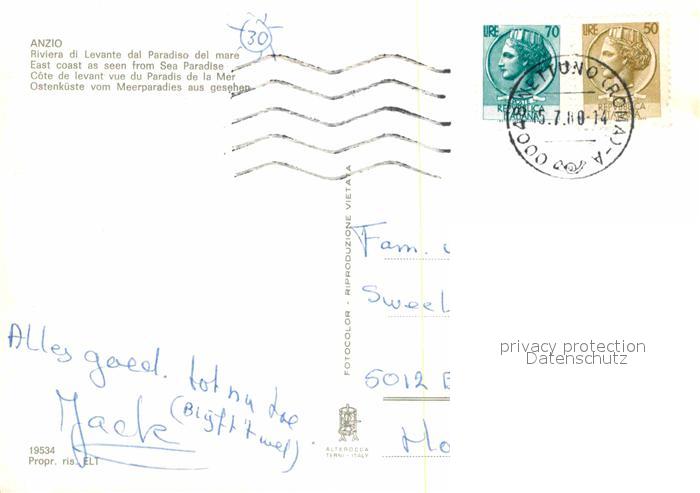 ANZIO
Riviera di Levante dal Paradiso del mare
East coast as seen from Sea Paradise
Côte de levant vue du Paradis de la Mer
Ostenküste vom Meerparadies aus gesehen
30
LIRE 70
REPUBBLICA
ITALIANA
LIRE 50
REPUBBLICA
ITALIANA
NETTUNO (ROMA) - A
5.7.80-14
FOTOCOLOR - RIPRODUZIONE VIETATA
Fam.
Sweel
5012
Ho
privacy protection
Datenschutz
Alles goed. tot nu toe
(Blijft 't wel)
Jack
19534
Propr. ris. ELT
ALTEROCCA
TERNI - ITALY